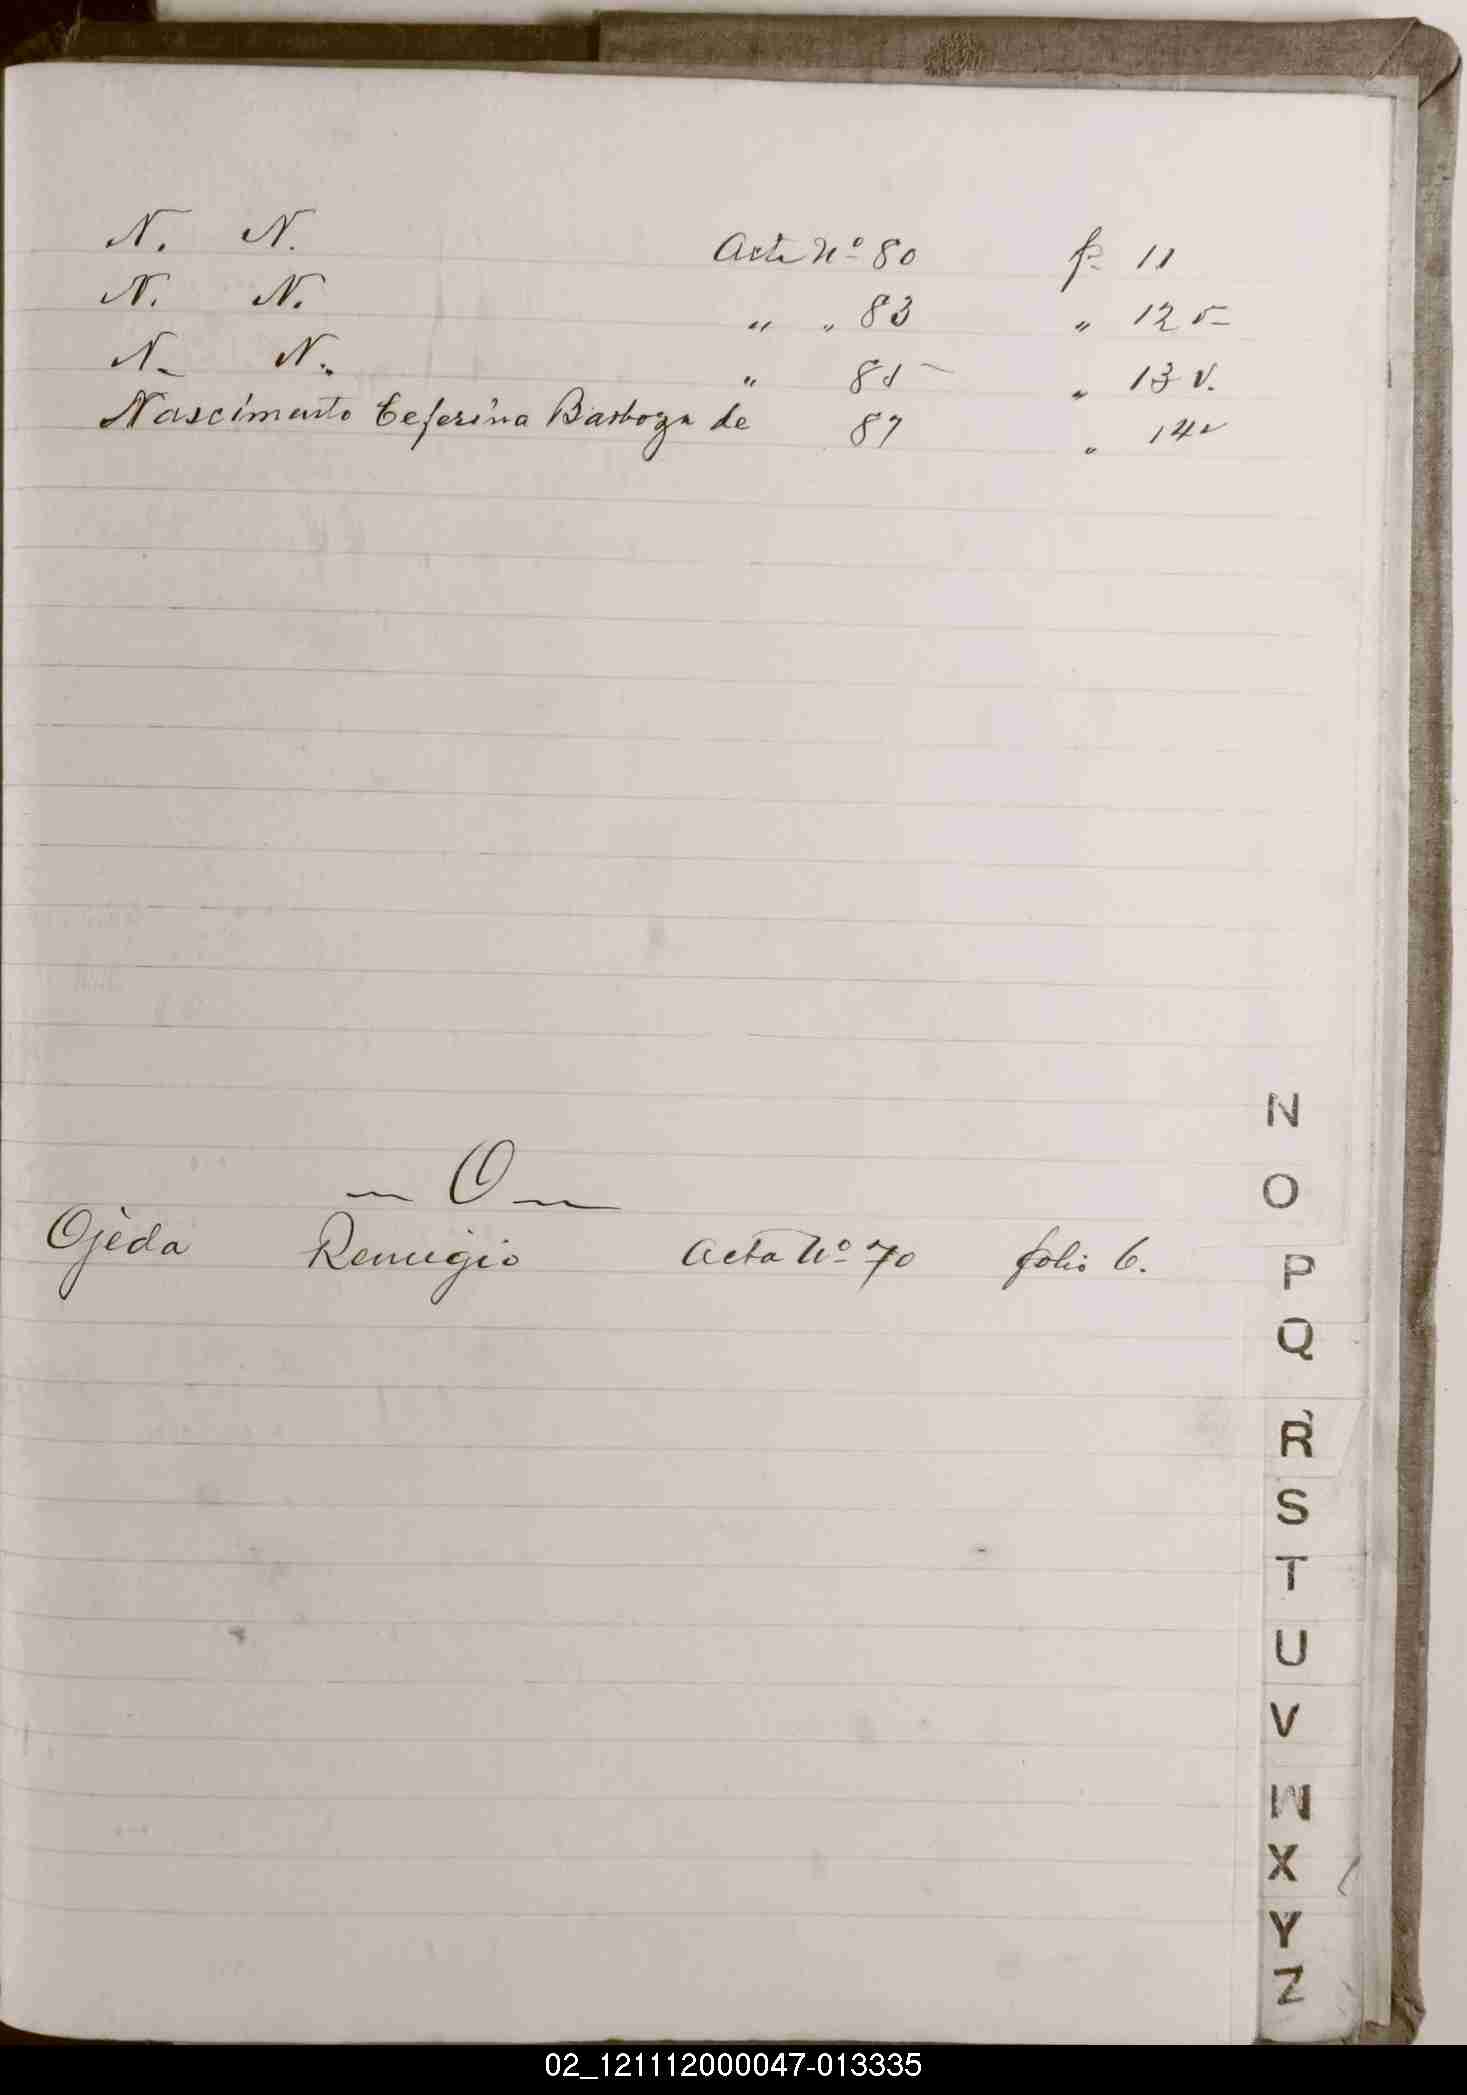 N. N. Acta Nº 80 f. 11
N. N. " " 83 " 12 v
N. N. " 85 " 13 v.
Nascimento Ceferina Barboza de 87 " 14 v
O
Ojeda Remigio Acta Nº 70 folio 6.
N
O
P
Q
R
S
T
U
V
W
X
Y
Z
02_121112000047-013335